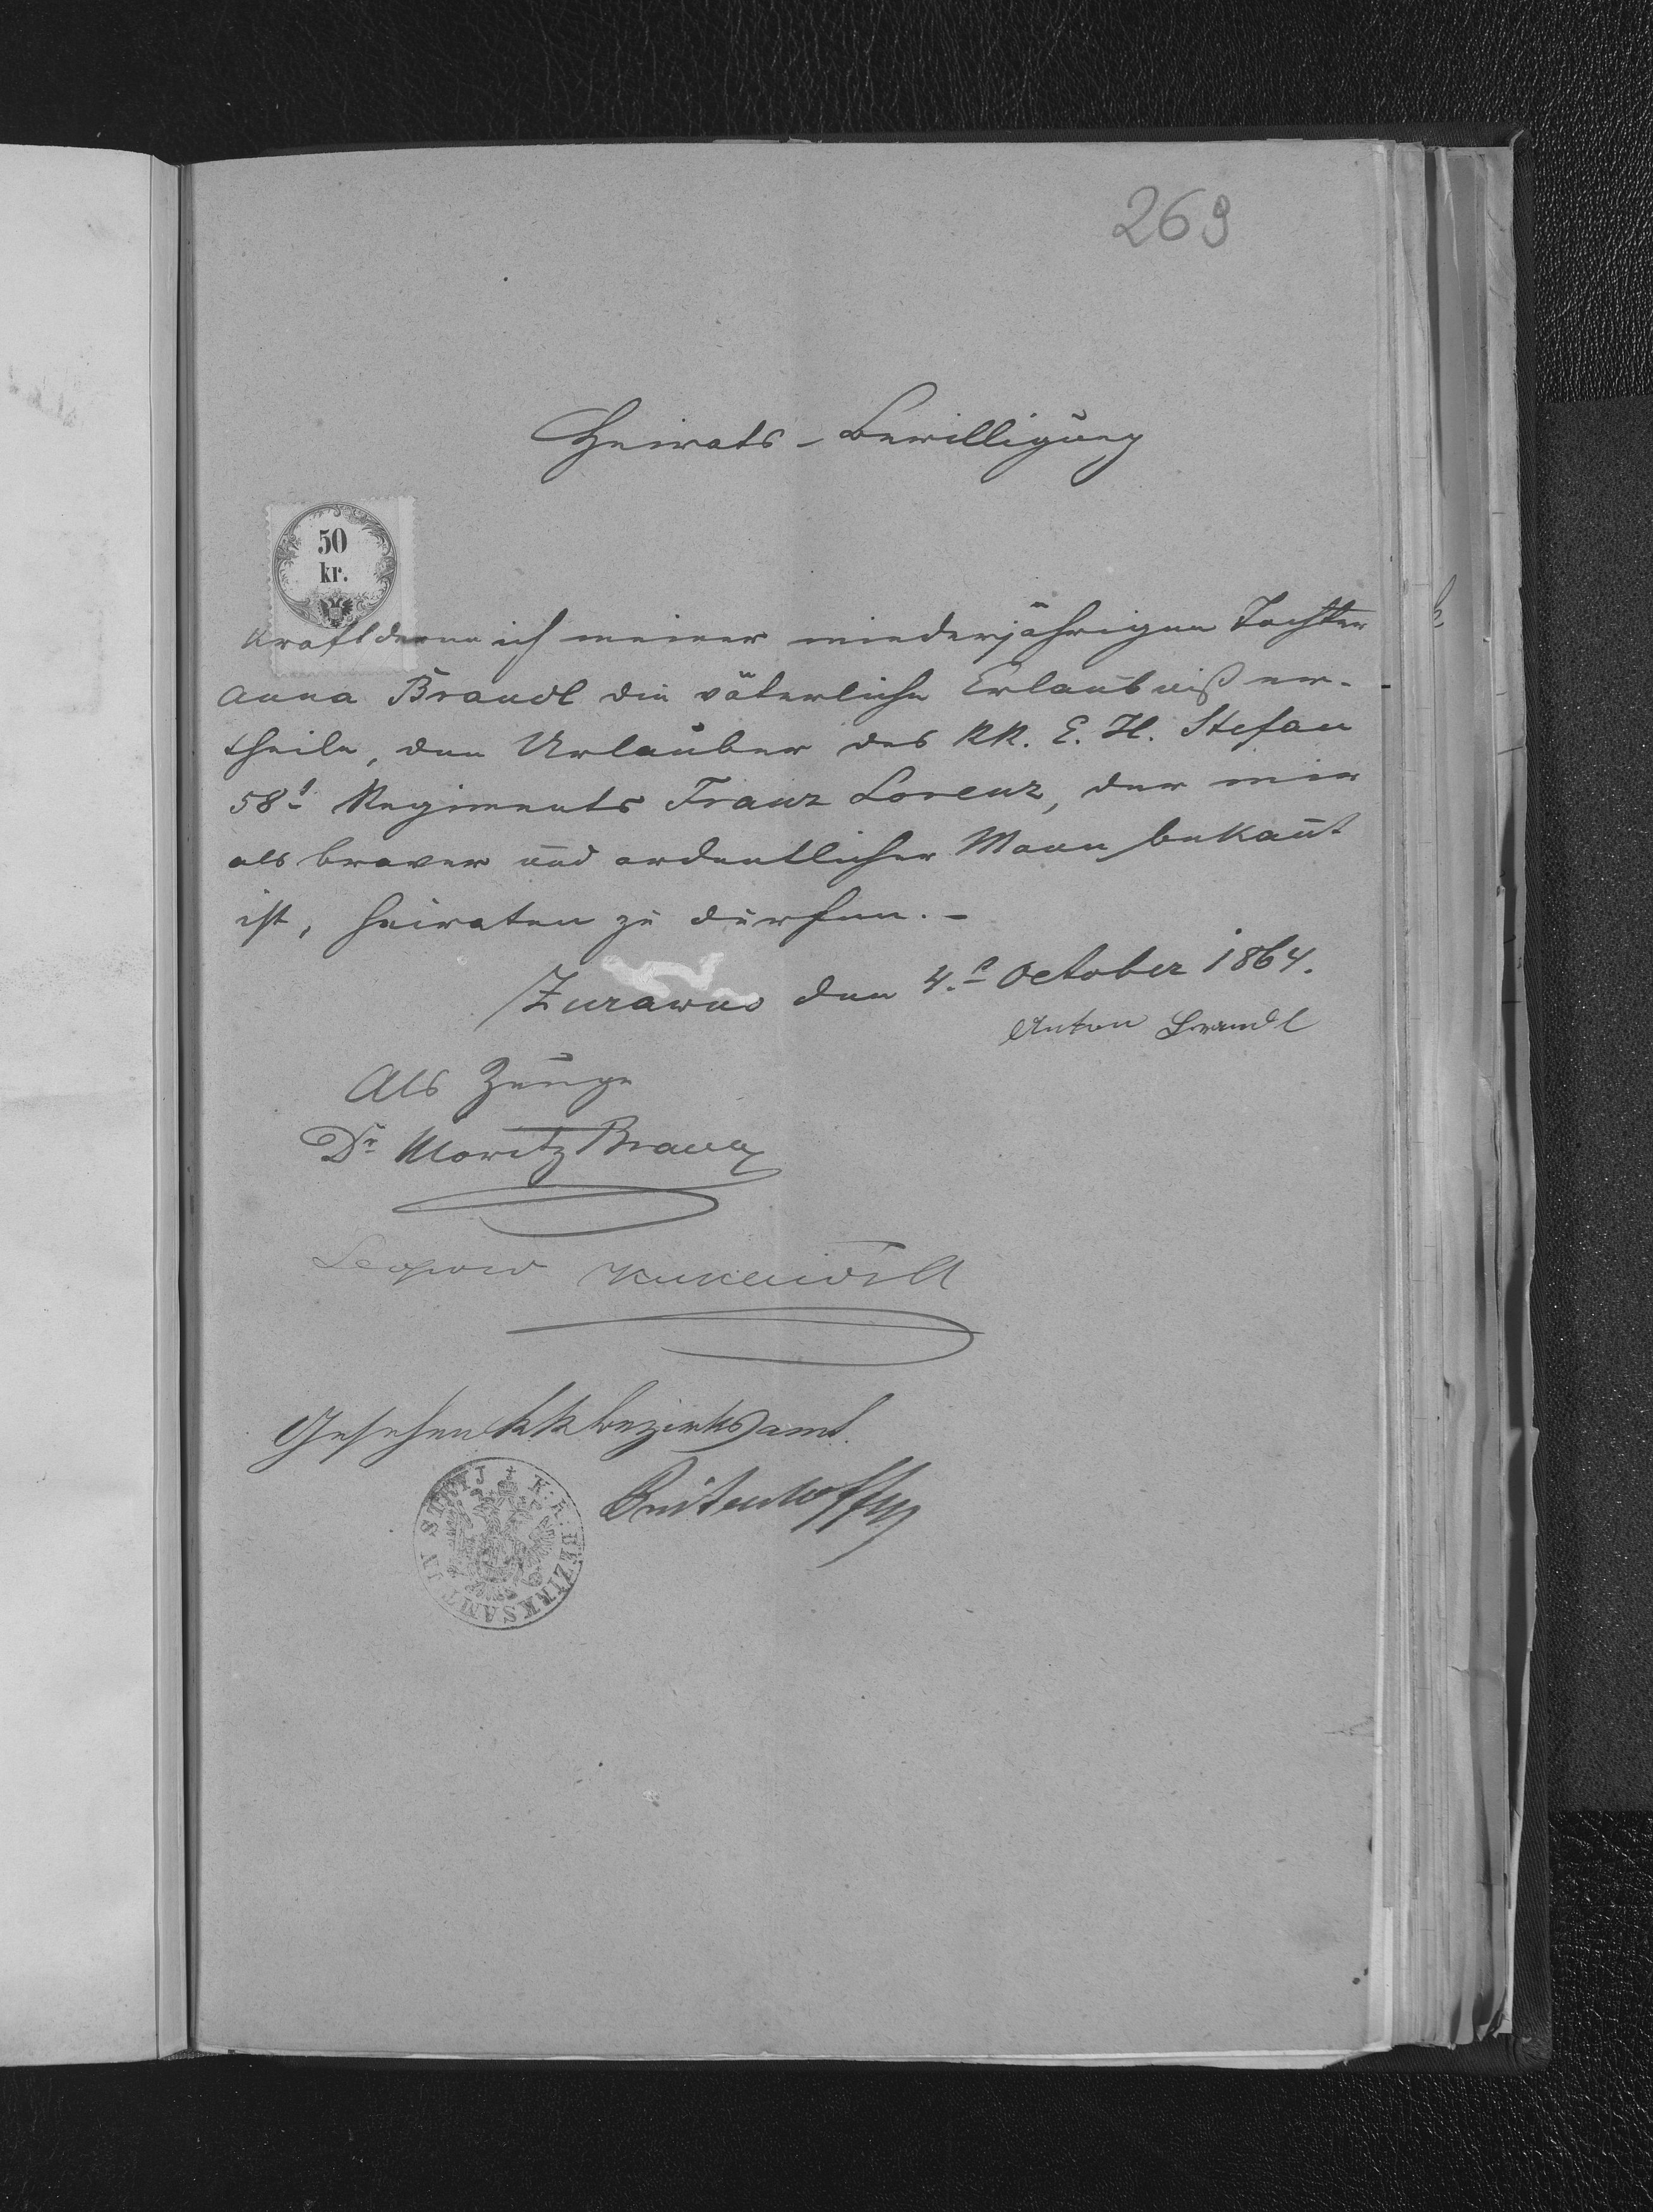 269
Heirats-Bewilligung
50
kr.
Kraft deren ich meiner minderjährigen Tochter
Anna Brandl die väterliche Erlaubniß er-
theile, den Urlauber des KK. E. H. Stefan
58t Regiments Franz Lorenz, der mir
als braver und ordentlicher Mann bekañt
ist, heiraten zu dürfen.-
Zurawno den 4.t October 1864.
Anton Brandl
Als Zeuge
Dr Moritz Braun
Leopold
Gesehen KK Bezirksamt
K. K. BEZIRKSAMT IN STRYJ